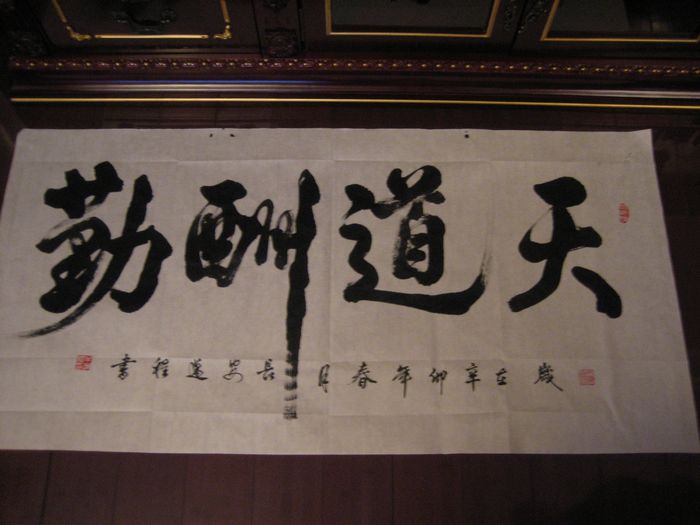 天道酬勤
歲在辛卯年春月長安程書